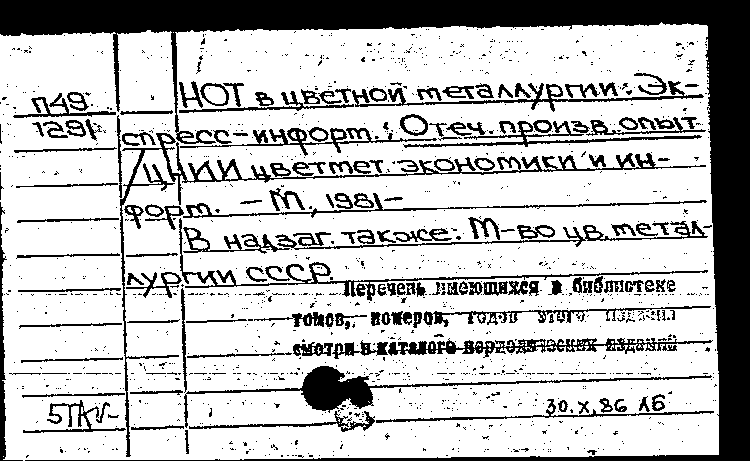 П49 НОТ в цветной металлургии: Эк-
1291 спресс-информ.; Отеч. произв. опыт
/ЦНИИ цветмет. экономики и ин-
форм. – М., 1981–
В надзаг. также: М-во цв. метал-
лургии СССР.
Перечень имеющихся в библиотеке
томов, номеров, годов этого издания
смотри в каталоге периодических изданий
30.X.86 ЛБ